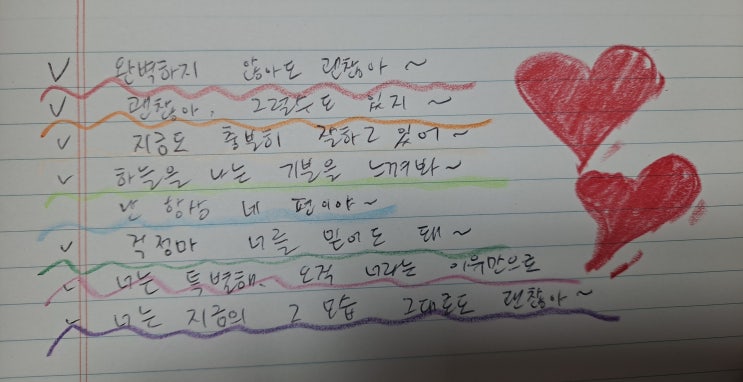 완벽하지 않아도 괜찮아 ~
괜찮아, 그럴수도 있지 ~
지금도 충분히 잘하고 있어 ~
하늘을 나는 기분을 느껴봐 ~
난 항상 네 편이야 ~
걱정마 너를 믿어도 돼 ~
너는 특별해. 오직 너라는 이유만으로
너는 지금의 그 모습 그대로도 괜찮아 ~